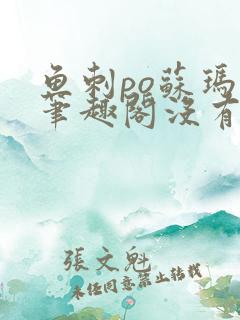 魚刺po蘇瑪
筆趣閣沒有
張文魁
未經同意禁止轉載